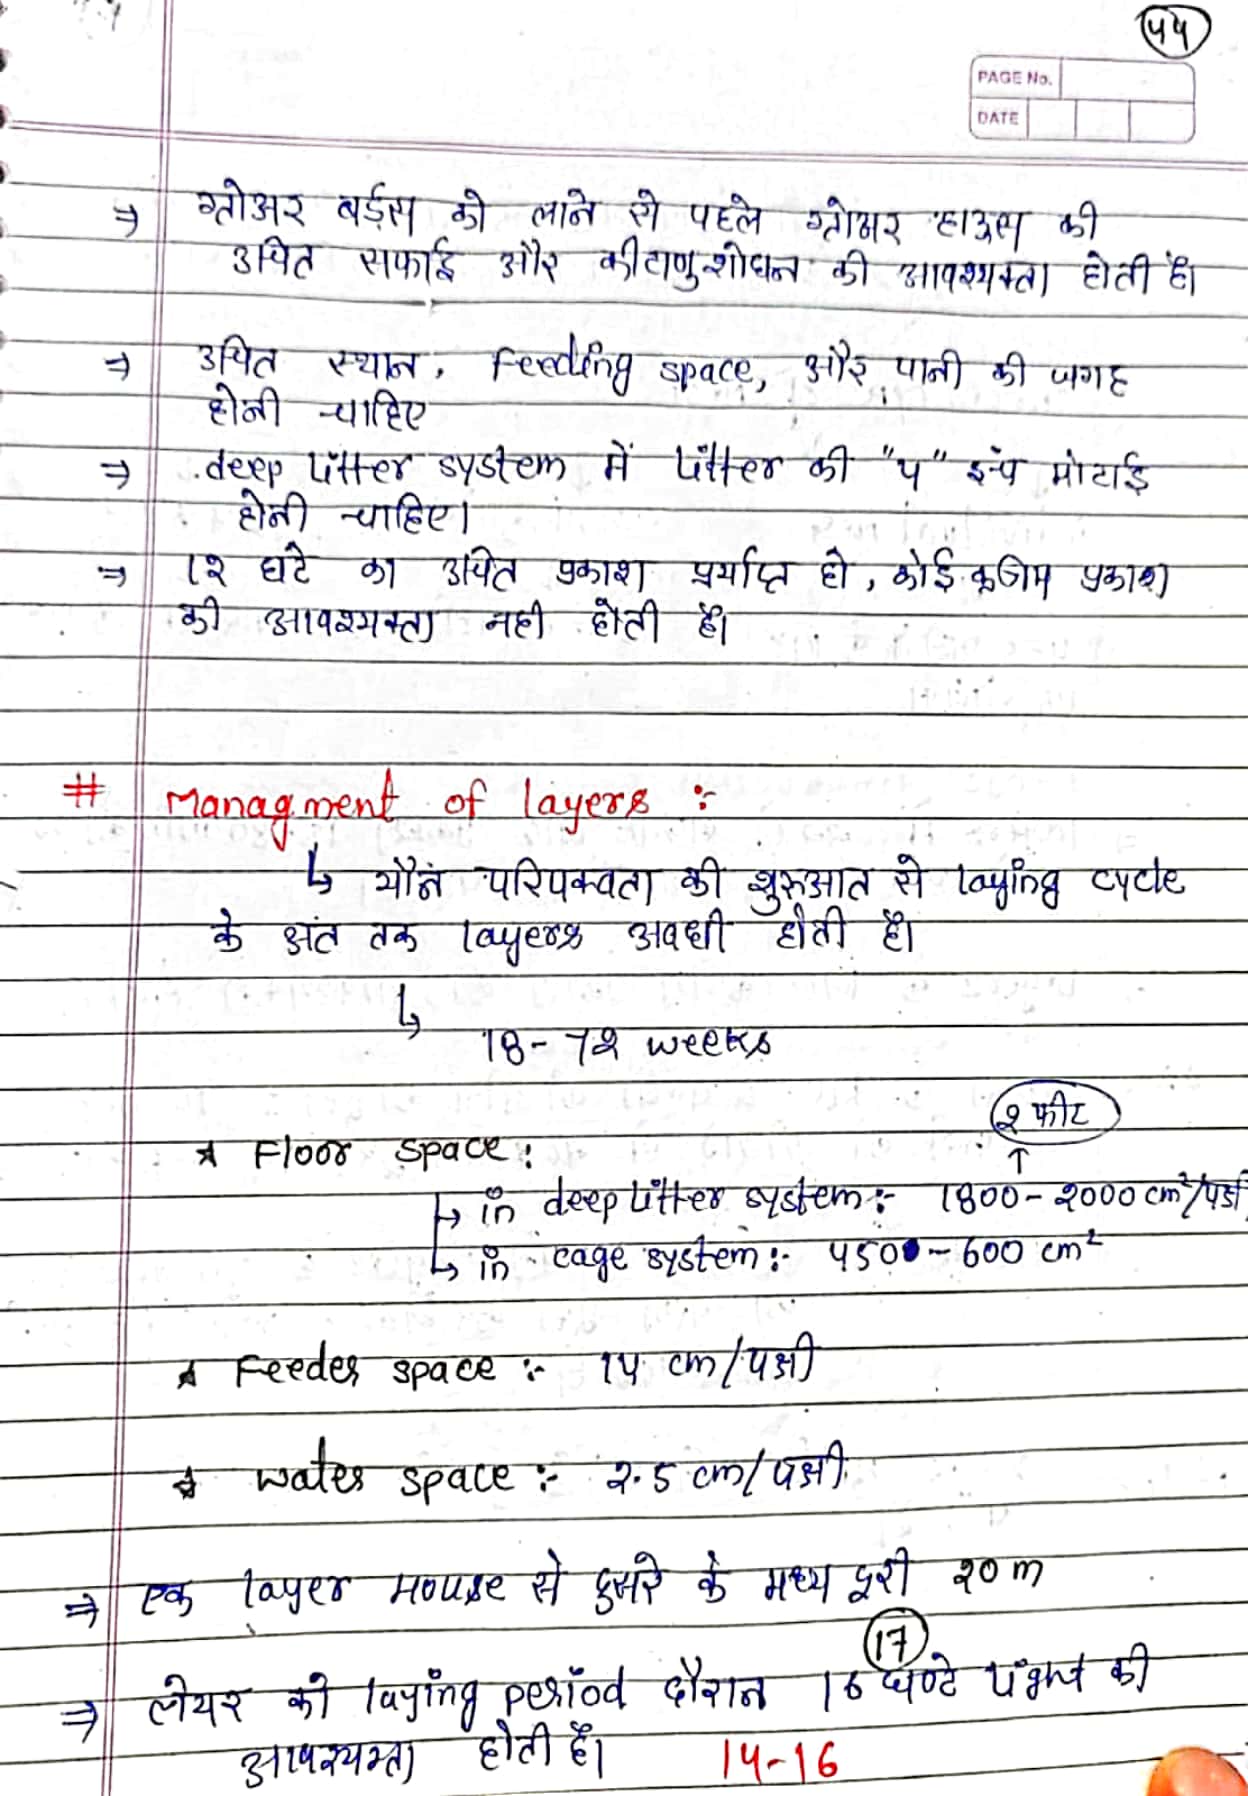 44
PAGE No.
DATE
⇒ ग्रोअर बर्ड्स को लाने से पहले ग्रोअर हाउस की
उचित सफाई और कीटाणुशोधन की आवश्यक्ता होती है।
⇒ उचित स्थान, Feeding space, और पानी की जगह
होनी चाहिए
⇒ deep litter system में litter की "4" इन्च मोटाई
होनी चाहिए।
⇒ 12 घंटे का उचित प्रकाश प्रर्याप्त हो, कोई कृत्रिम प्रकाश
की आवश्यक्ता नही होती है।
# Managment of layers :-
↳ यौन परिपक्वता की शुरुआत से laying cycle
के अंत तक layers अवधी होती है।
↳ 18-72 weeks
2 फीट
★ Floor space :
↑
↳ in deep litter system :- 1800-2000 cm²/पक्षी
↳ in cage system :- 450-600 cm²
★ Feeder space :- 14 cm/पक्षी
★ water space :- 2.5 cm/पक्षी
⇒ एक layer House से दुसरे के मध्य दूरी 20 m
17
⇒ लेयर को laying period दौरान 16 घण्टे light की
आवश्यक्ता होती है। 14-16